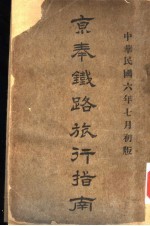 中華民國六年七月初版
京奉鐵路旅行指南